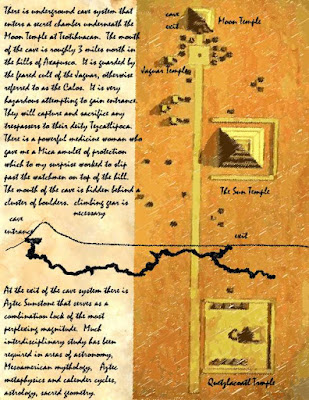 There is underground cave system that
enters a secret chamber underneath the
Moon Temple at Teotihuacan. The mouth
of the cave is roughly 3 miles north in
the hills of Axapusco. It is guarded by
the feared cult of the Jaguar, otherwise
referred to as the Calos. It is very
hazardous attempting to gain entrance.
They will capture and sacrifice any
trespassers to their deity Tezcatlipoca.
There is a powerful medicine woman who
gave me a Mica amulet of protection
which to my surprise worked to slip
past the watchmen on top of the hill.
The mouth of the cave is hidden behind a
cluster of boulders. climbing gear is
necessary
cave
entrance
exit
At the exit of the cave system there is
Aztec Sunstone that serves as a
combination lock of the most
perplexing magnitude. Much
interdisciplinary study has been
required in areas of astronomy,
Mesoamerican mythology, Aztec
metaphysics and calender cycles,
astrology, sacred geometry.
cave
exit
Moon Temple
Jaguar Temple
The Sun Temple
Quetzlacoatl Temple